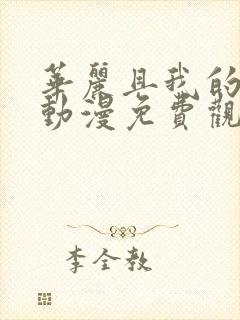 華麗且我的
動漫免費觀
李全教